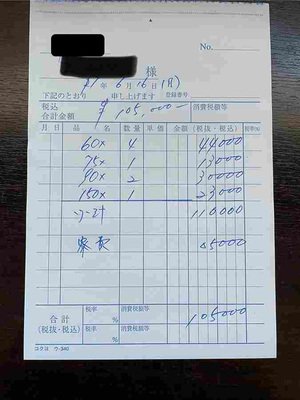 様
No.
年 6月16日(月)
下記のとおり 申し上げます 登録番号
税込
合計金額 ¥105,000- 消費税額等
月 日 品 名 数量 単価 金額 (税抜・税込) 税率(%)
60x 4 44000
75x 1 13000
90x 2 30000
150x 1 23000
小計 110000
△5000
合計 税率 % 消費税額等 105000
(税抜・税込) 税率 % 消費税額等
コクヨ ウ-340